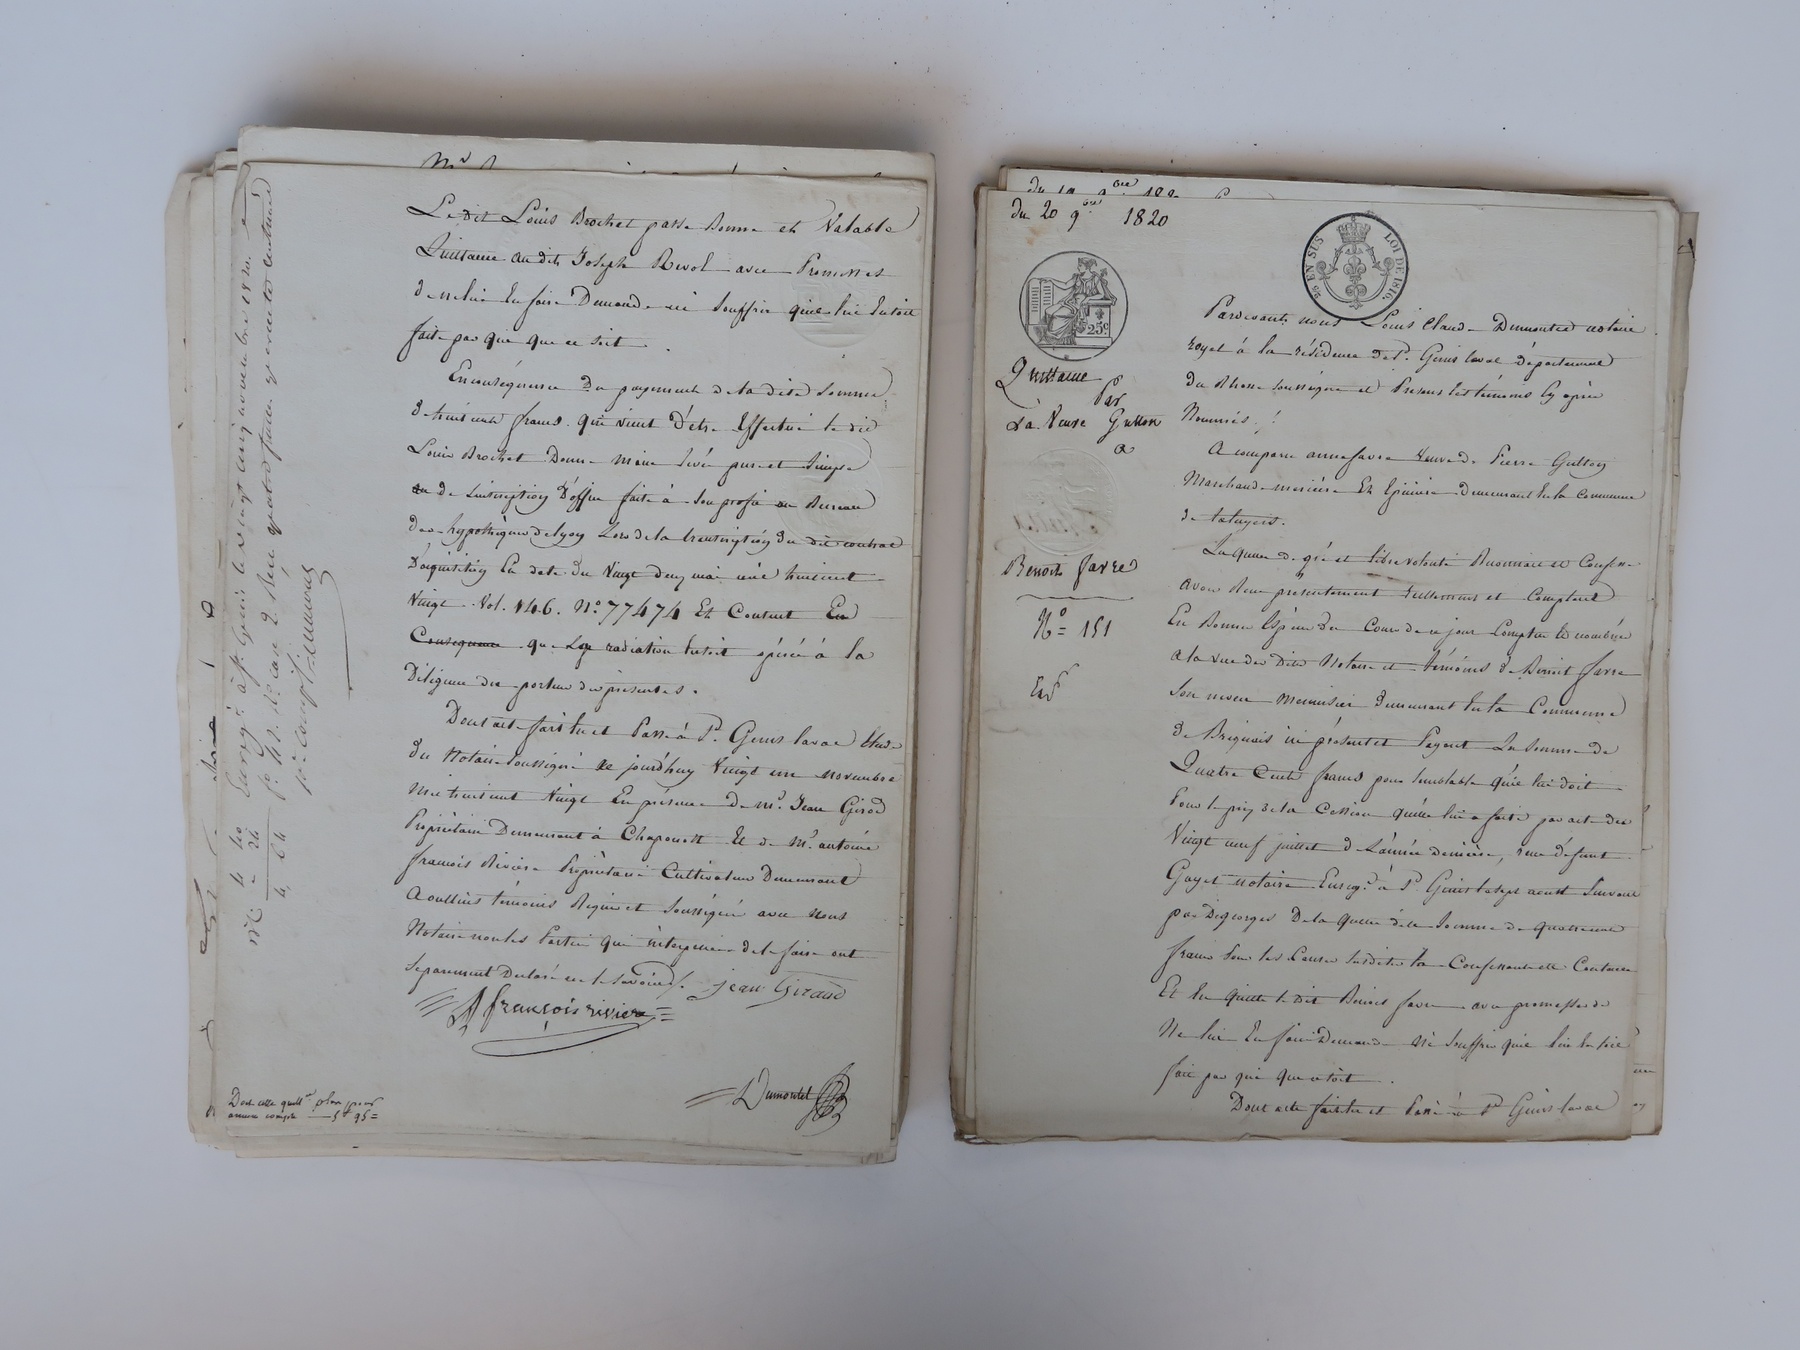 Le dit Louis Brochet passe Bonne et Valable
Quittance au dit Joseph Revol avec Promesses
de ne lui En faire Demande ni Souffrir qu'el lui En soit
fait par qui que ce soit.
En conséquence Du payement de la dite Somme
de huit cents francs qui vient D'être Effectué le dit
Louis Brochet Donne main levée pure et Simple
de L'inscription D'office faite à son profit au Bureau
des hypothèques de Lyon Lors de la transcription du dit contrat
D'acquisition En date du Vingt deux mai mil huit cent
Vingt Vol. 146. N.° 77474 Et Consent En
Conséquence que La radiation En soit opérée à la
Diligence du porteur des présentes.
Dont acte fait lu et Passé à S.t Genis laval Etude
du Notaire Soussigné Le jourd'huy Vingt un novembre
mil huit cent Vingt En présence De M.r Jean Girod
Propriétaire Demeurant à Chaponost Et de M.r antoine
françois Rivière Propriétaire Cultivateur Demeurant
A oullins témoins Requis et Soussignés avec nous
Notaire non les Parties qui interpellées de le faire ont
Séparément Déclaré ne le Savoir.
jean Giraud
A françois riviere
Dumontet
Dont cette quitt.ce plus pour
5 f 95 c
Enreg.é à S.t Genis le vingt cinq novembre 1820.
4 40
44
4, 84
du 20 9.bre 1820
25 c
26 EN SUS LOI DE 1816.
Quittance
Par
La Veuve Gutton
a
Benoit favre
N.° = 151
Exp
Pardevant nous Louis Claude Dumontet notaire
royal à la résidence de S.t Genis laval Département
du Rhône soussigné et Présens les témoins Cy après
Nommés.
A comparu anne favre Veuve de Pierre Gutton
Marchande mercière Et Epicière demeurant En la Commune
de taluyers.
Laquelle de gré et libre volonté Reconnait et Confesse
avoir Reçu présentement Réellement et Comptant
En Bonnes Espèces du Cours de ce jour Comptées et nombrées
a la vue des Dits Notaire et témoins de Benoit favre
Son neveu menuisier demeurant En la Commune
de Brignais ici présent et Payant La Somme de
Quatre Cents francs pour Semblable qu'il lui doit
Pour le prix de la Cession qu'elle lui a faite par acte du
Vingt neuf juillet de L'année dernière, reçu défunt
Gayet notaire Enreg.é à S.t Genis le sept aout Suivant
par Degeorges De la quelle dite Somme de quatre cents
francs Pour les Causes Susdites la Confessante est Contente
Et En quitte le dit Benoit favre avec promesses de
Ne lui En faire Demande ni Souffrir qu'il lui En soit
fait par qui que ce soit.
Dont acte fait lu et Passé à S.t Genis laval